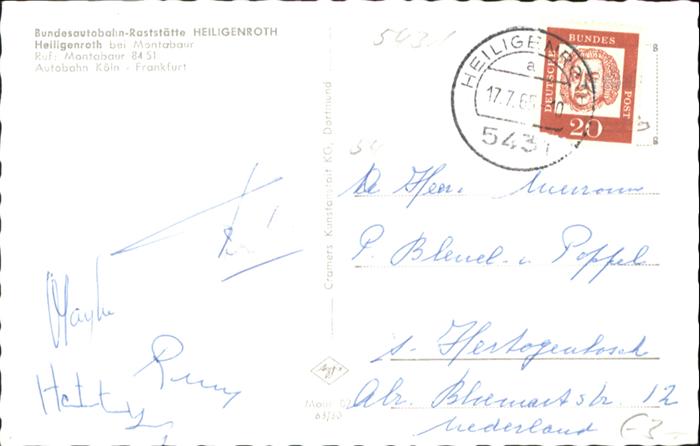 Bundesautobahn-Raststätte HEILIGENROTH
Heiligenroth bei Montabaur
Ruf: Montabaur 84 51
Autobahn Köln - Frankfurt
5431
HEILIGENROTH
a
17.7.65
5431
DEUTSCHE BUNDES POST
20
Cramers Kunstanstalt KG, Dortmund
De Heer Mevrouw
P. Bleuel - v Poppel
s-Hertogenbosch
Abr. Bloemaertstr. 12
Nederland
Agfa
63/60